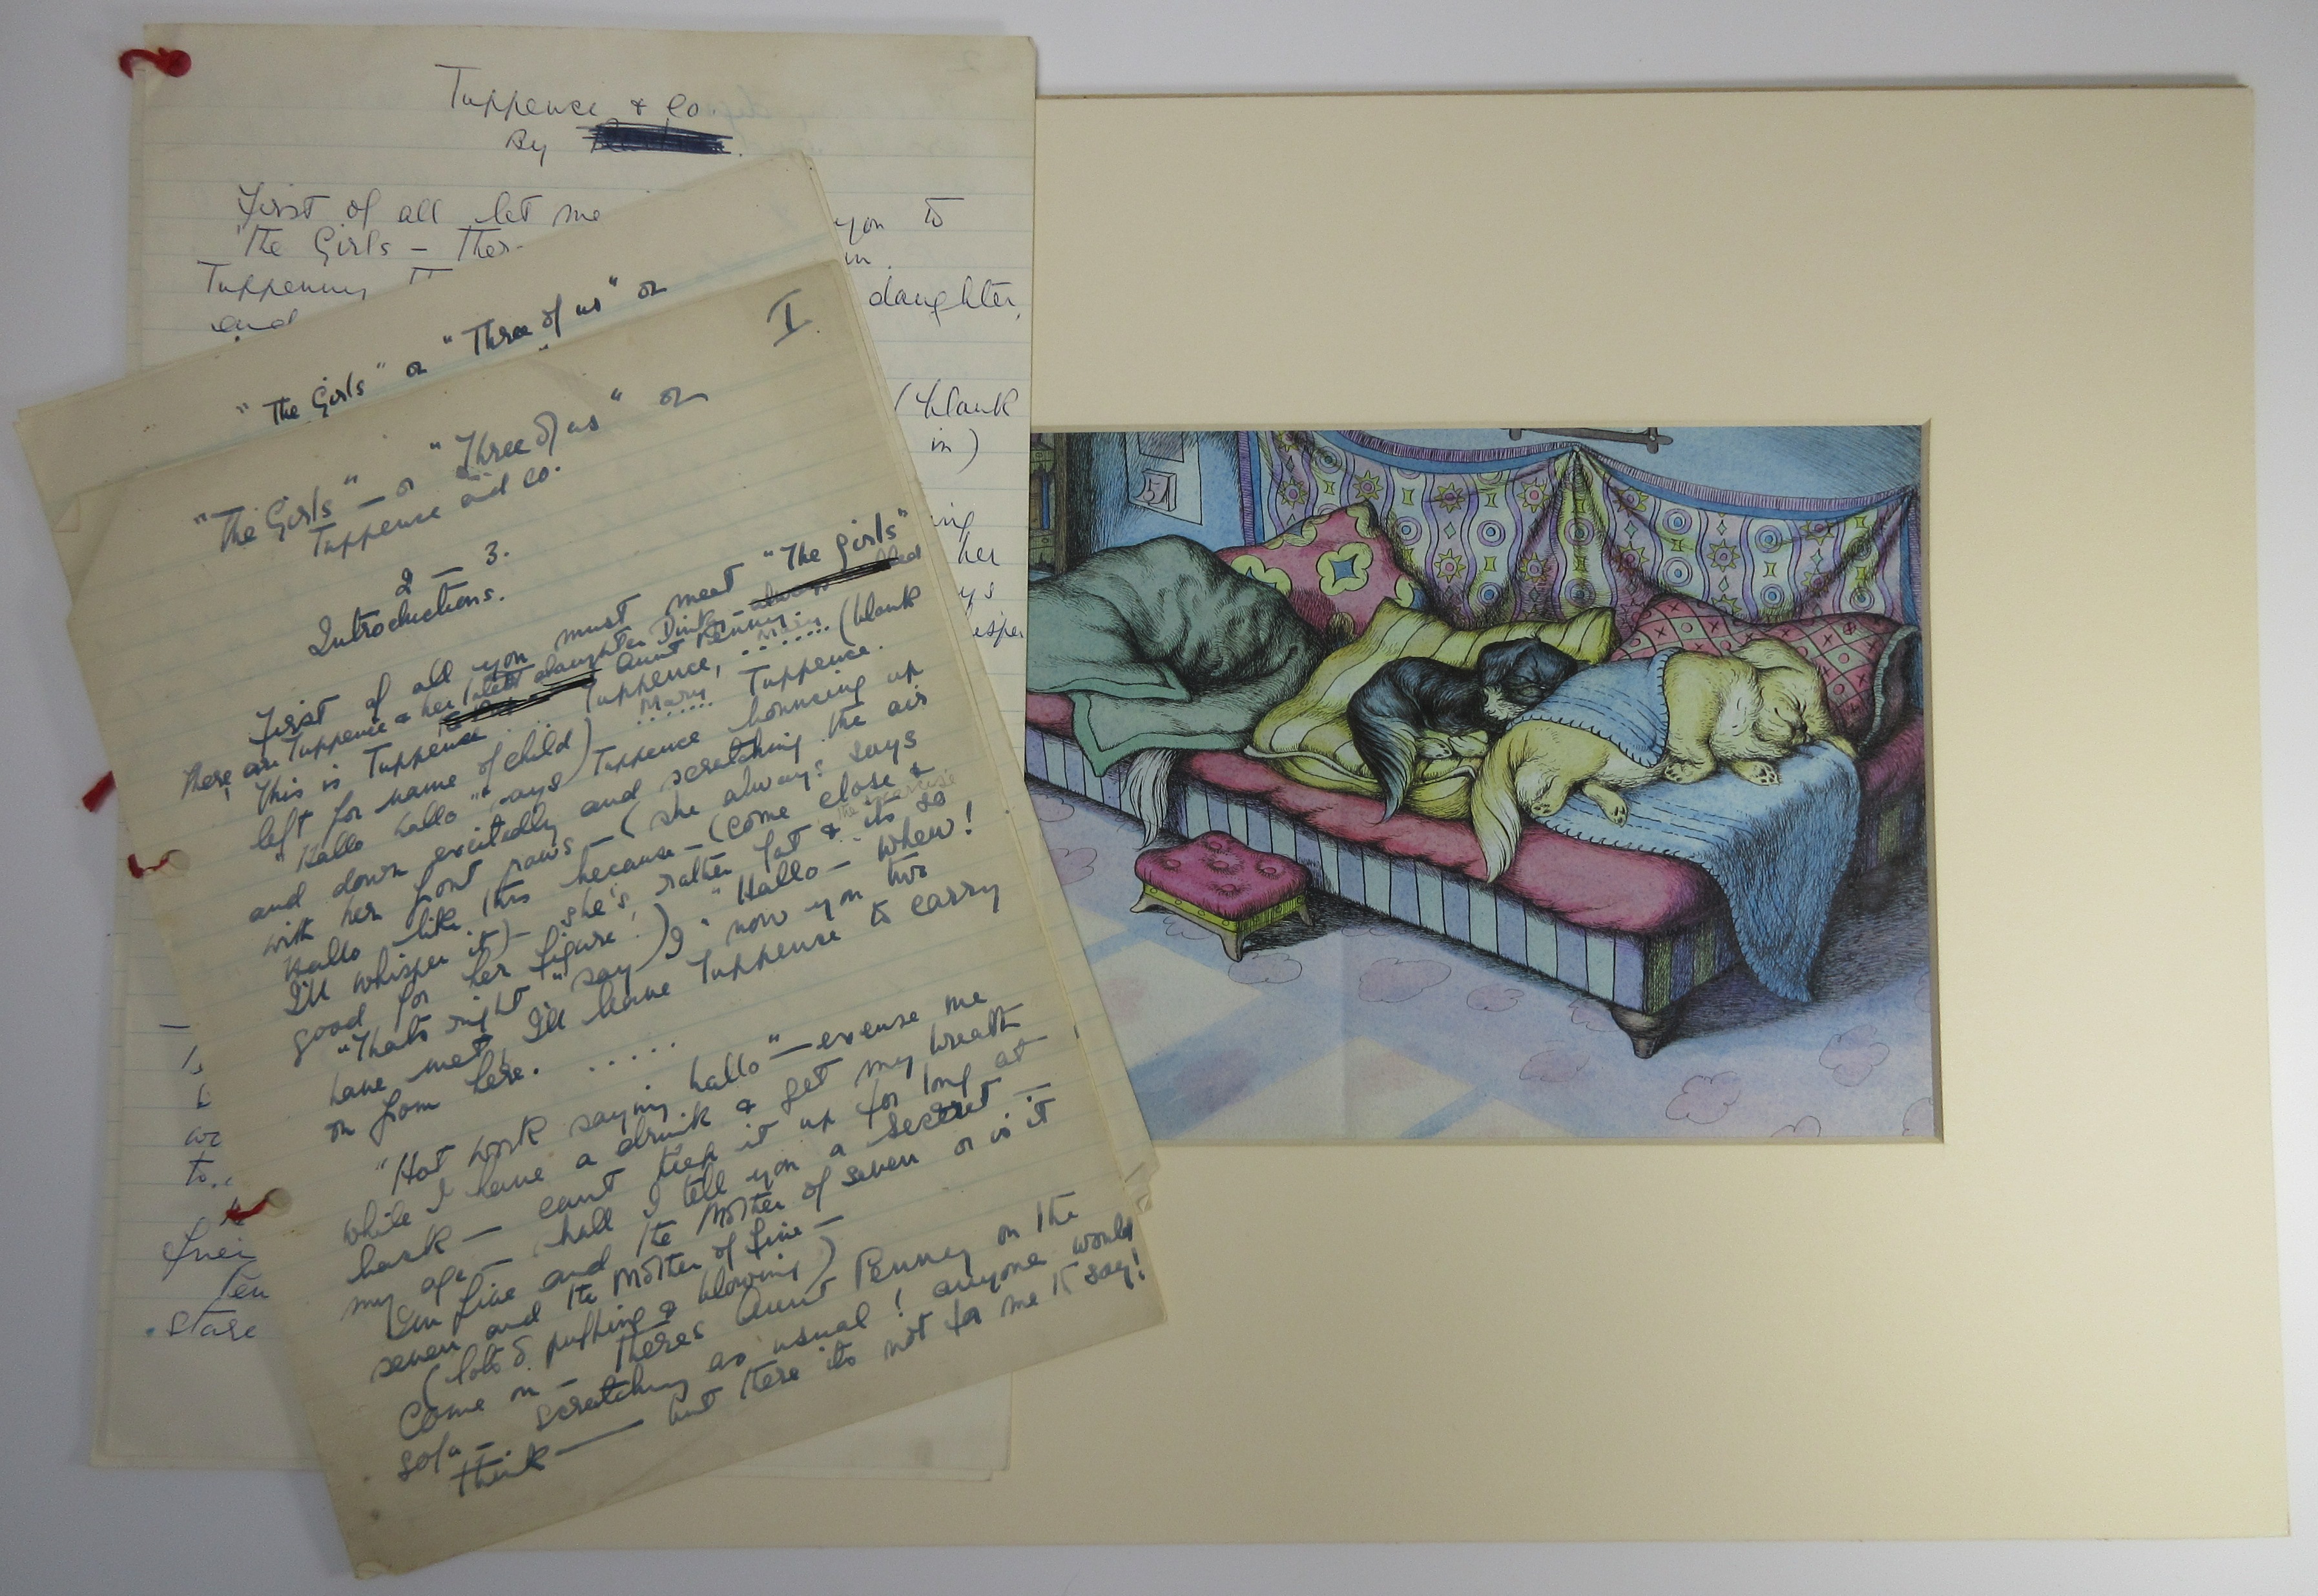 Tuppence & Co.
By
First of all let me you to
"The Girls – Ther
Tuppenny daughter,
and
(blank
in)
ing
her
ys
isper
"The Girls" or "Three of us" or
I.
"The Girls" – or "Three of us" or
Tuppence and Co.
2 – 3.
Introductions.
First of all you must meet "The Girls"
There are Tuppence & her latest daughter Dinky Aunt Penny – always
This is Tuppence ... Tuppence, ....... (blank
Mary
left for name of child) ....... Tuppence.
Mary
"Hallo hallo" says Tuppence bouncing up
and down excitedly and scratching the air
with her font paws – (she always says
Hallo like this because – (come close &
I'll whisper it) – she's rather fat & its so
the exercise
good for her figure.) "Hallo – whew!
"Thats right" say I "now you two
have met, I'll leave Tuppence to carry
on from here. .....
"Hot work saying hallo" – excuse me
while I have a drink & get my breath
back – cant keep it up for long at
my age – shall I tell you a secret –
I'm five and the Mother of seven or is it
seven and the Mother of five –
(lots of puffing & blowing)
Come on – theres Aunt Penney on the
sofa – scratching as usual! anyone would
think — but there its not for me to say!
to..
frei
ten
stare
51